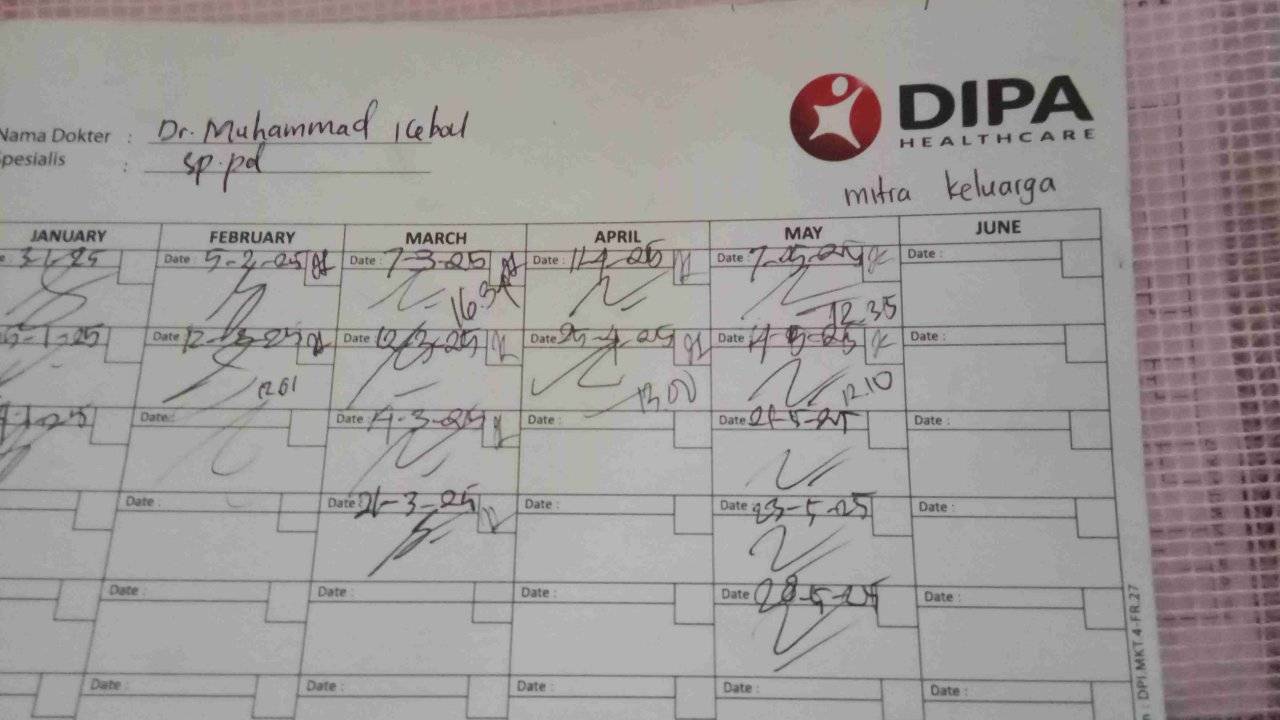 DIPA
HEALTHCARE
Nama Dokter : Dr. Muhammad Icebal
Spesialis : sp.pd
mitra keluarga
JANUARY FEBRUARY MARCH APRIL MAY JUNE
Date : 5-2-25 Date : 7-3-25 Date : 11-4-25 Date : 7-05-25 Date :
16.3 12.35
5-1-25 Date 12-2-25 Date : 12-3-25 Date 25-4-25 Date 14-5-25 Date :
12.01 13.00 12.10
Date : Date : 14-3-25 Date : Date 21-5-25 Date :
Date Date 21-3-25 Date : Date 23-5-25 Date :
Date : Date : Date : Date 28-5-25 Date :
Date : Date : Date : Date : Date :
: DPI.MKT.4-FR.27